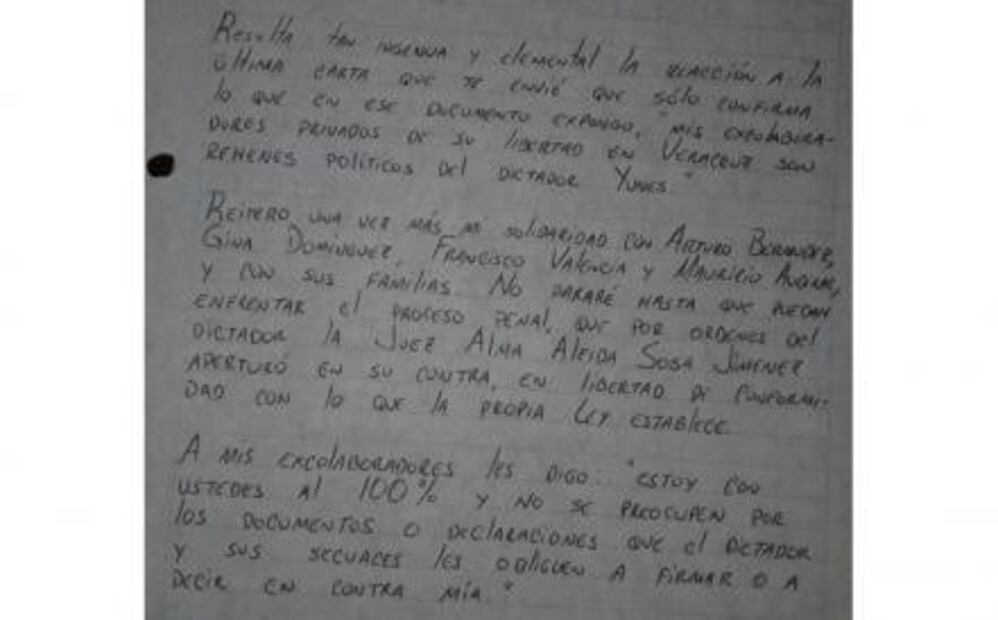 Resulta tan ingenua y elemental la reacción a la
última carta que te envié que sólo confirma
lo que en ese documento expongo, "mis excolabora-
dores privados de su libertad en Veracruz son
rehenes políticos del dictador Yunes."
Reitero una vez más mi solidaridad con Arturo Bermúdez,
Gina Domínguez, Francisco Valencia y Mauricio Audirac,
y con sus familias. No pararé hasta que puedan
enfrentar el proceso penal, que por ordenes del
dictador la Juez Alma Aleida Sosa Jimenez
aperturó en su contra, en libertad de conformi-
dad con lo que la propia Ley establece.
A mis excolaboradores les digo: "estoy con
ustedes al 100% y no se preocupen por
los documentos o declaraciones que el dictador
y sus secuaces les obliguen a firmar o a
decir en contra mía."